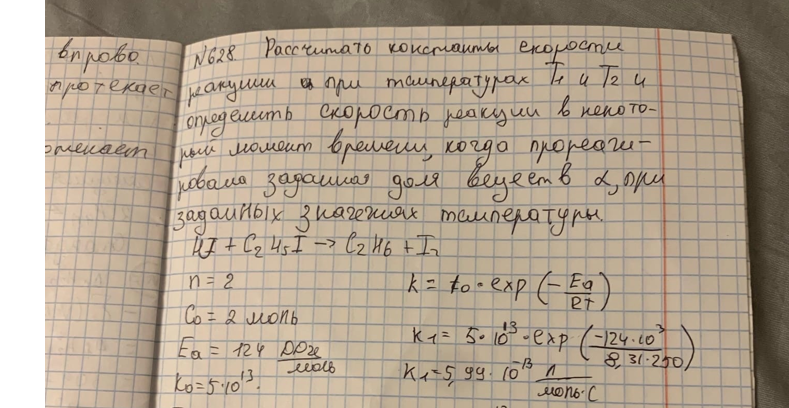 вправо
протекает
№628. Рассчитать константы скорости
реакции при температурах T₁ и T₂ и
определить скорость реакции в некото-
рый момент времени, когда прореаги-
ровала заданная доля веществ α, при
заданных значениях температуры.
HI + C₂H₅I → C₂H₆ + I₂
n = 2
C₀ = 2 моль
Eа = 124 кДж/моль
k₀ = 5·10¹³.
k = k₀ · exp (- Eа/RT)
k₁ = 5·10¹³ · exp (-124·10³/8,31·250)
k₁ = 5,99·10⁻¹³ л/моль·с